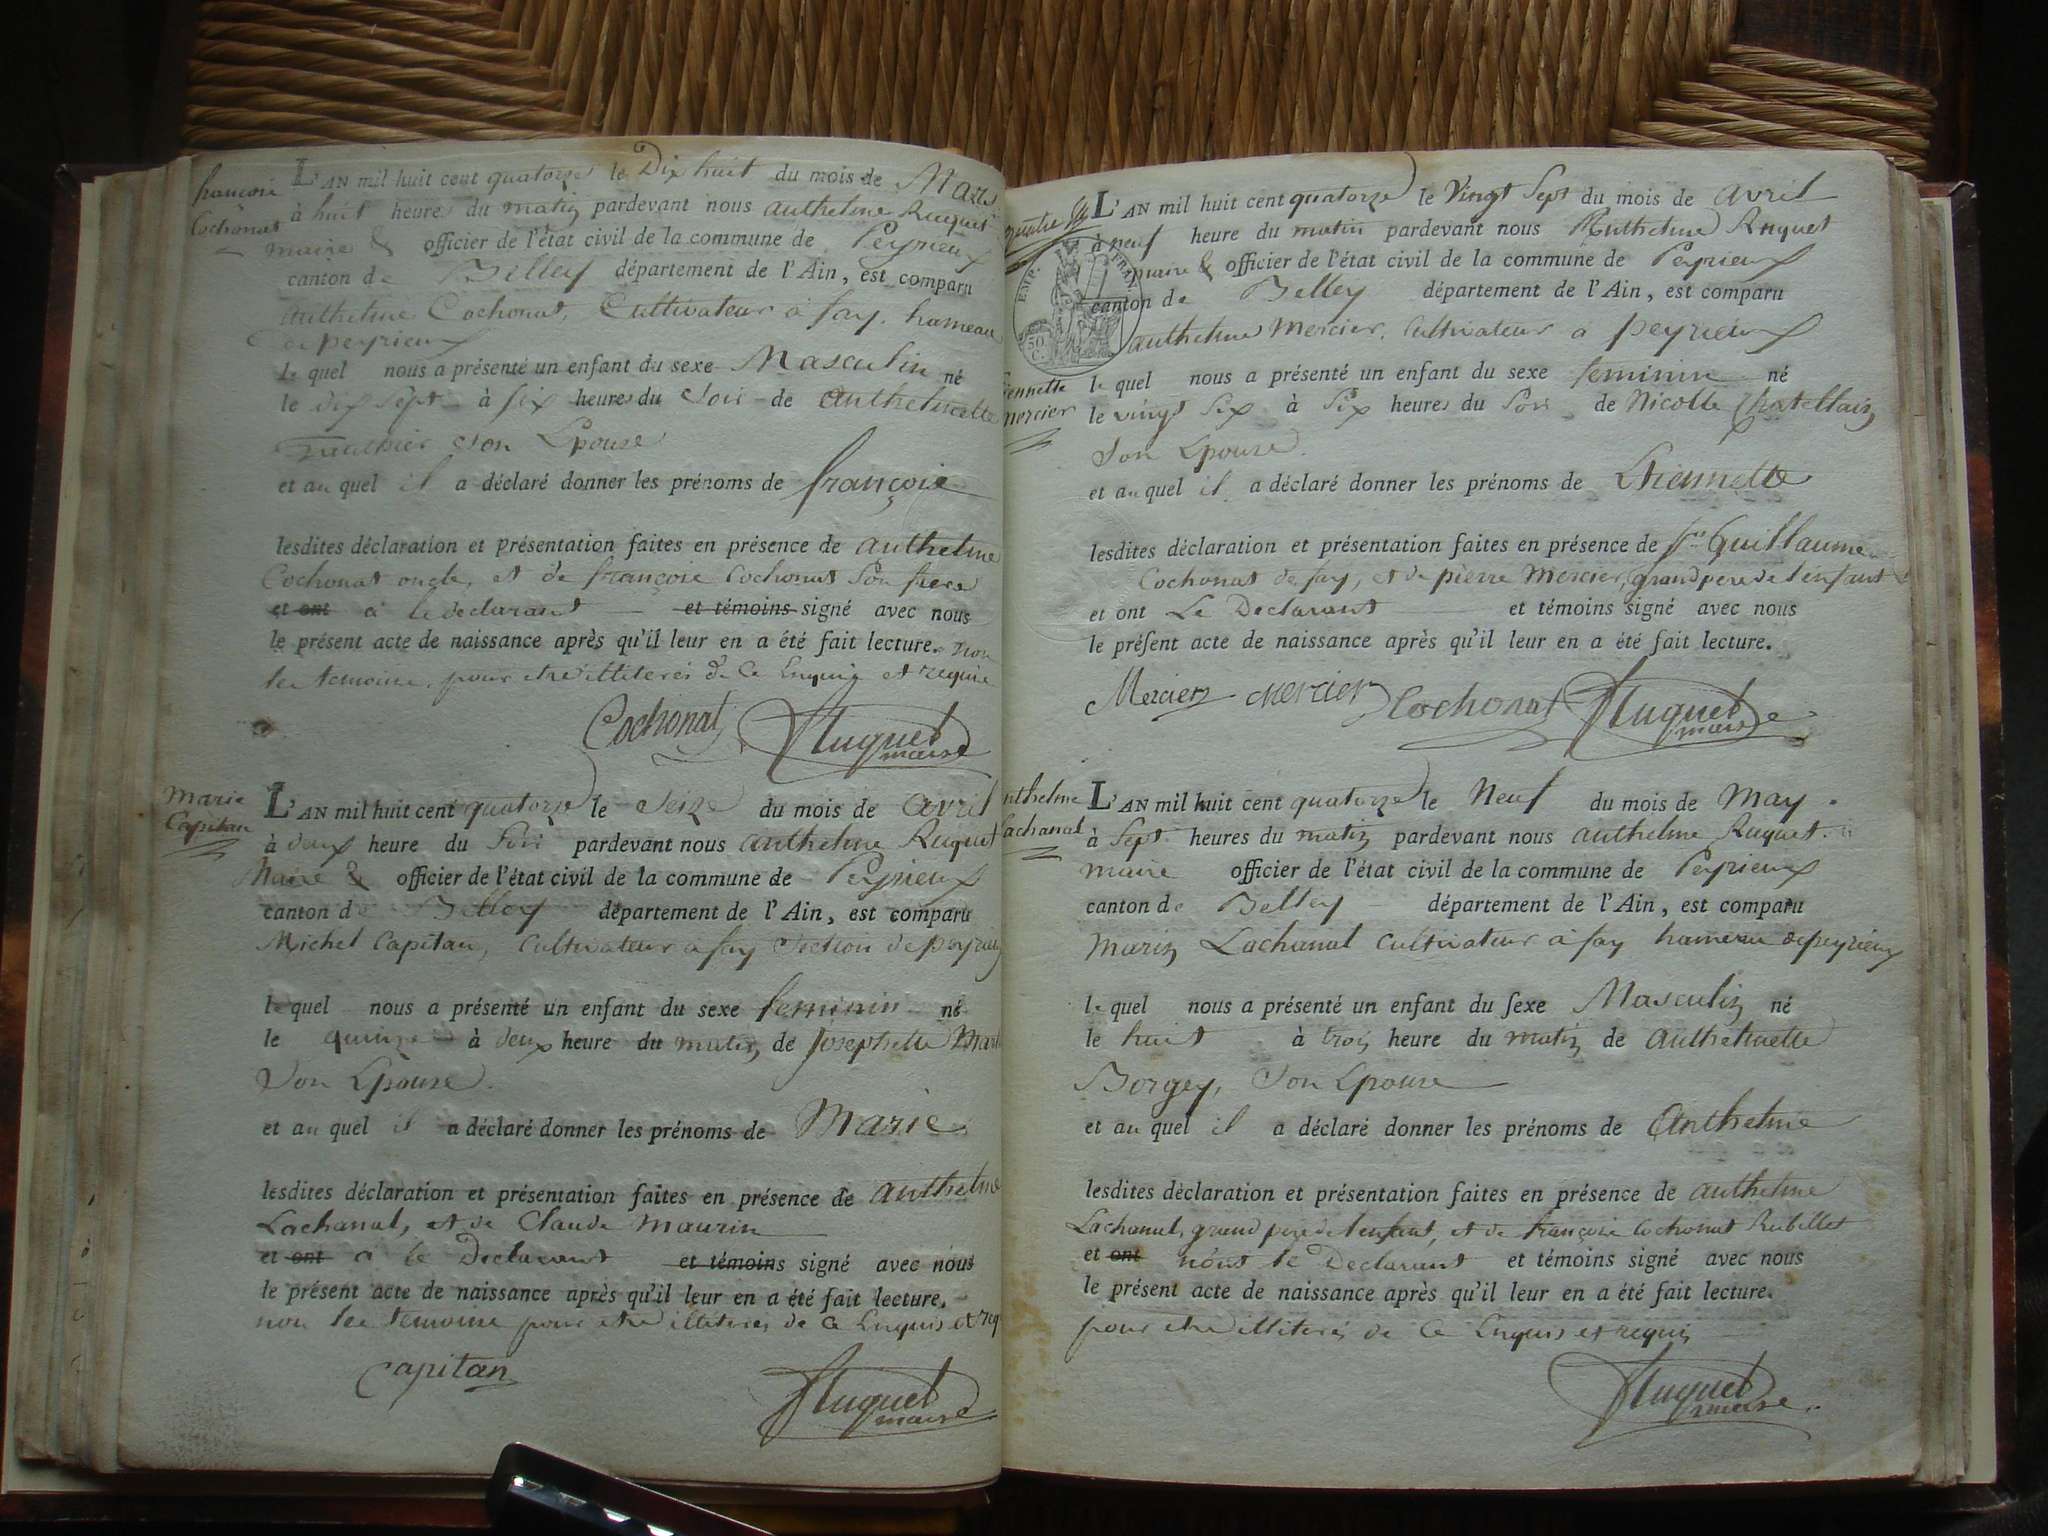 françois
Cochonat
L'AN mil huit cent quatorze le Dix huit du mois de Mars
à huit heures du matin pardevant nous anthelme Ruquet
maire & officier de l'état civil de la commune de Peyrieux
canton de Belley département de l'Ain, est comparu
anthelme Cochonat, Cultivateur à fay. hameau
de peyrieux
le quel nous a présenté un enfant du sexe Masculin né
le dix sept à six heures du Soir de anthelmette
gauthier son Epouse
et au quel il a déclaré donner les prénoms de françois
lesdites déclaration et présentation faites en présence de anthelme
Cochonat oncle, et de françois Cochonat son frere
et ont a le declarant et témoins signé avec nous
le présent acte de naissance après qu'il leur en a été fait lecture. non
les temoins, pour etre illiterés de ce Enquis et requis
Cochonat Huguet
maire
Marie
Capitan
L'AN mil huit cent quatorze le Seize du mois de avril
à deux heure du Soir pardevant nous anthelme Ruquet
Maire & officier de l'état civil de la commune de Peyrieux
canton de Belley département de l'Ain, est comparu
Michel Capitan, cultivateur a fay Section de peyrieux
le quel nous a présenté un enfant du sexe feminin né
le quinze à deux heure du matin de Josephette
Son Epouse.
et au quel il a déclaré donner les prénoms de Marie
lesdites déclaration et présentation faites en présence de anthelme
Lachanal, et de Claude Maurin
et ont a le Declarant et témoins signé avec nous
le présent acte de naissance après qu'il leur en a été fait lecture.
non les temoins pour etre illiteres de ce Enquis et req
Capitan
Huguet
maire
EMP. FRAN.
50
C.
L'AN mil huit cent quatorze le Vingt Sept du mois de avril
à neuf heure du matin pardevant nous Anthelme Ruquet
maire & officier de l'état civil de la commune de Peyrieux
canton de Belley département de l'Ain, est comparu
anthelme Mercier, Cultivateur a peyrieux
Etiennette
mercier
le quel nous a présenté un enfant du sexe feminin né
le vingt Six à Six heures du Soir de Nicolle Chatellain
Son Epouse.
et au quel il a déclaré donner les prénoms de Etiennette
lesdites déclaration et présentation faites en présence de Guillaume
Cochonat de fay, et de pierre Mercier, grand pere de l'enfant
et ont Le Declarant et témoins signé avec nous
le présent acte de naissance après qu'il leur en a été fait lecture.
Mercier Mercier Cochonat Huguet
maire
anthelme
Lachanal
L'AN mil huit cent quatorze le Neuf du mois de May
à Sept heures du matin pardevant nous anthelme Ruquet
maire officier de l'état civil de la commune de Peyrieux
canton de Belley département de l'Ain, est comparu
Marin Lachanal cultivateur à fay hameau de peyrieux
le quel nous a présenté un enfant du sexe Masculin né
le huit à trois heure du matin de anthelmette
Borgey, Son Epouse
et au quel il a déclaré donner les prénoms de Anthelme
lesdites déclaration et présentation faites en présence de anthelme
Lachanal, grand pere de l'enfant, et de françois Cochonat Rubillet
et ont n'ont le Declarant et témoins signé avec nous
le présent acte de naissance après qu'il leur en a été fait lecture.
pour etre illiterés de ce Enquis et requis
Huguet
maire